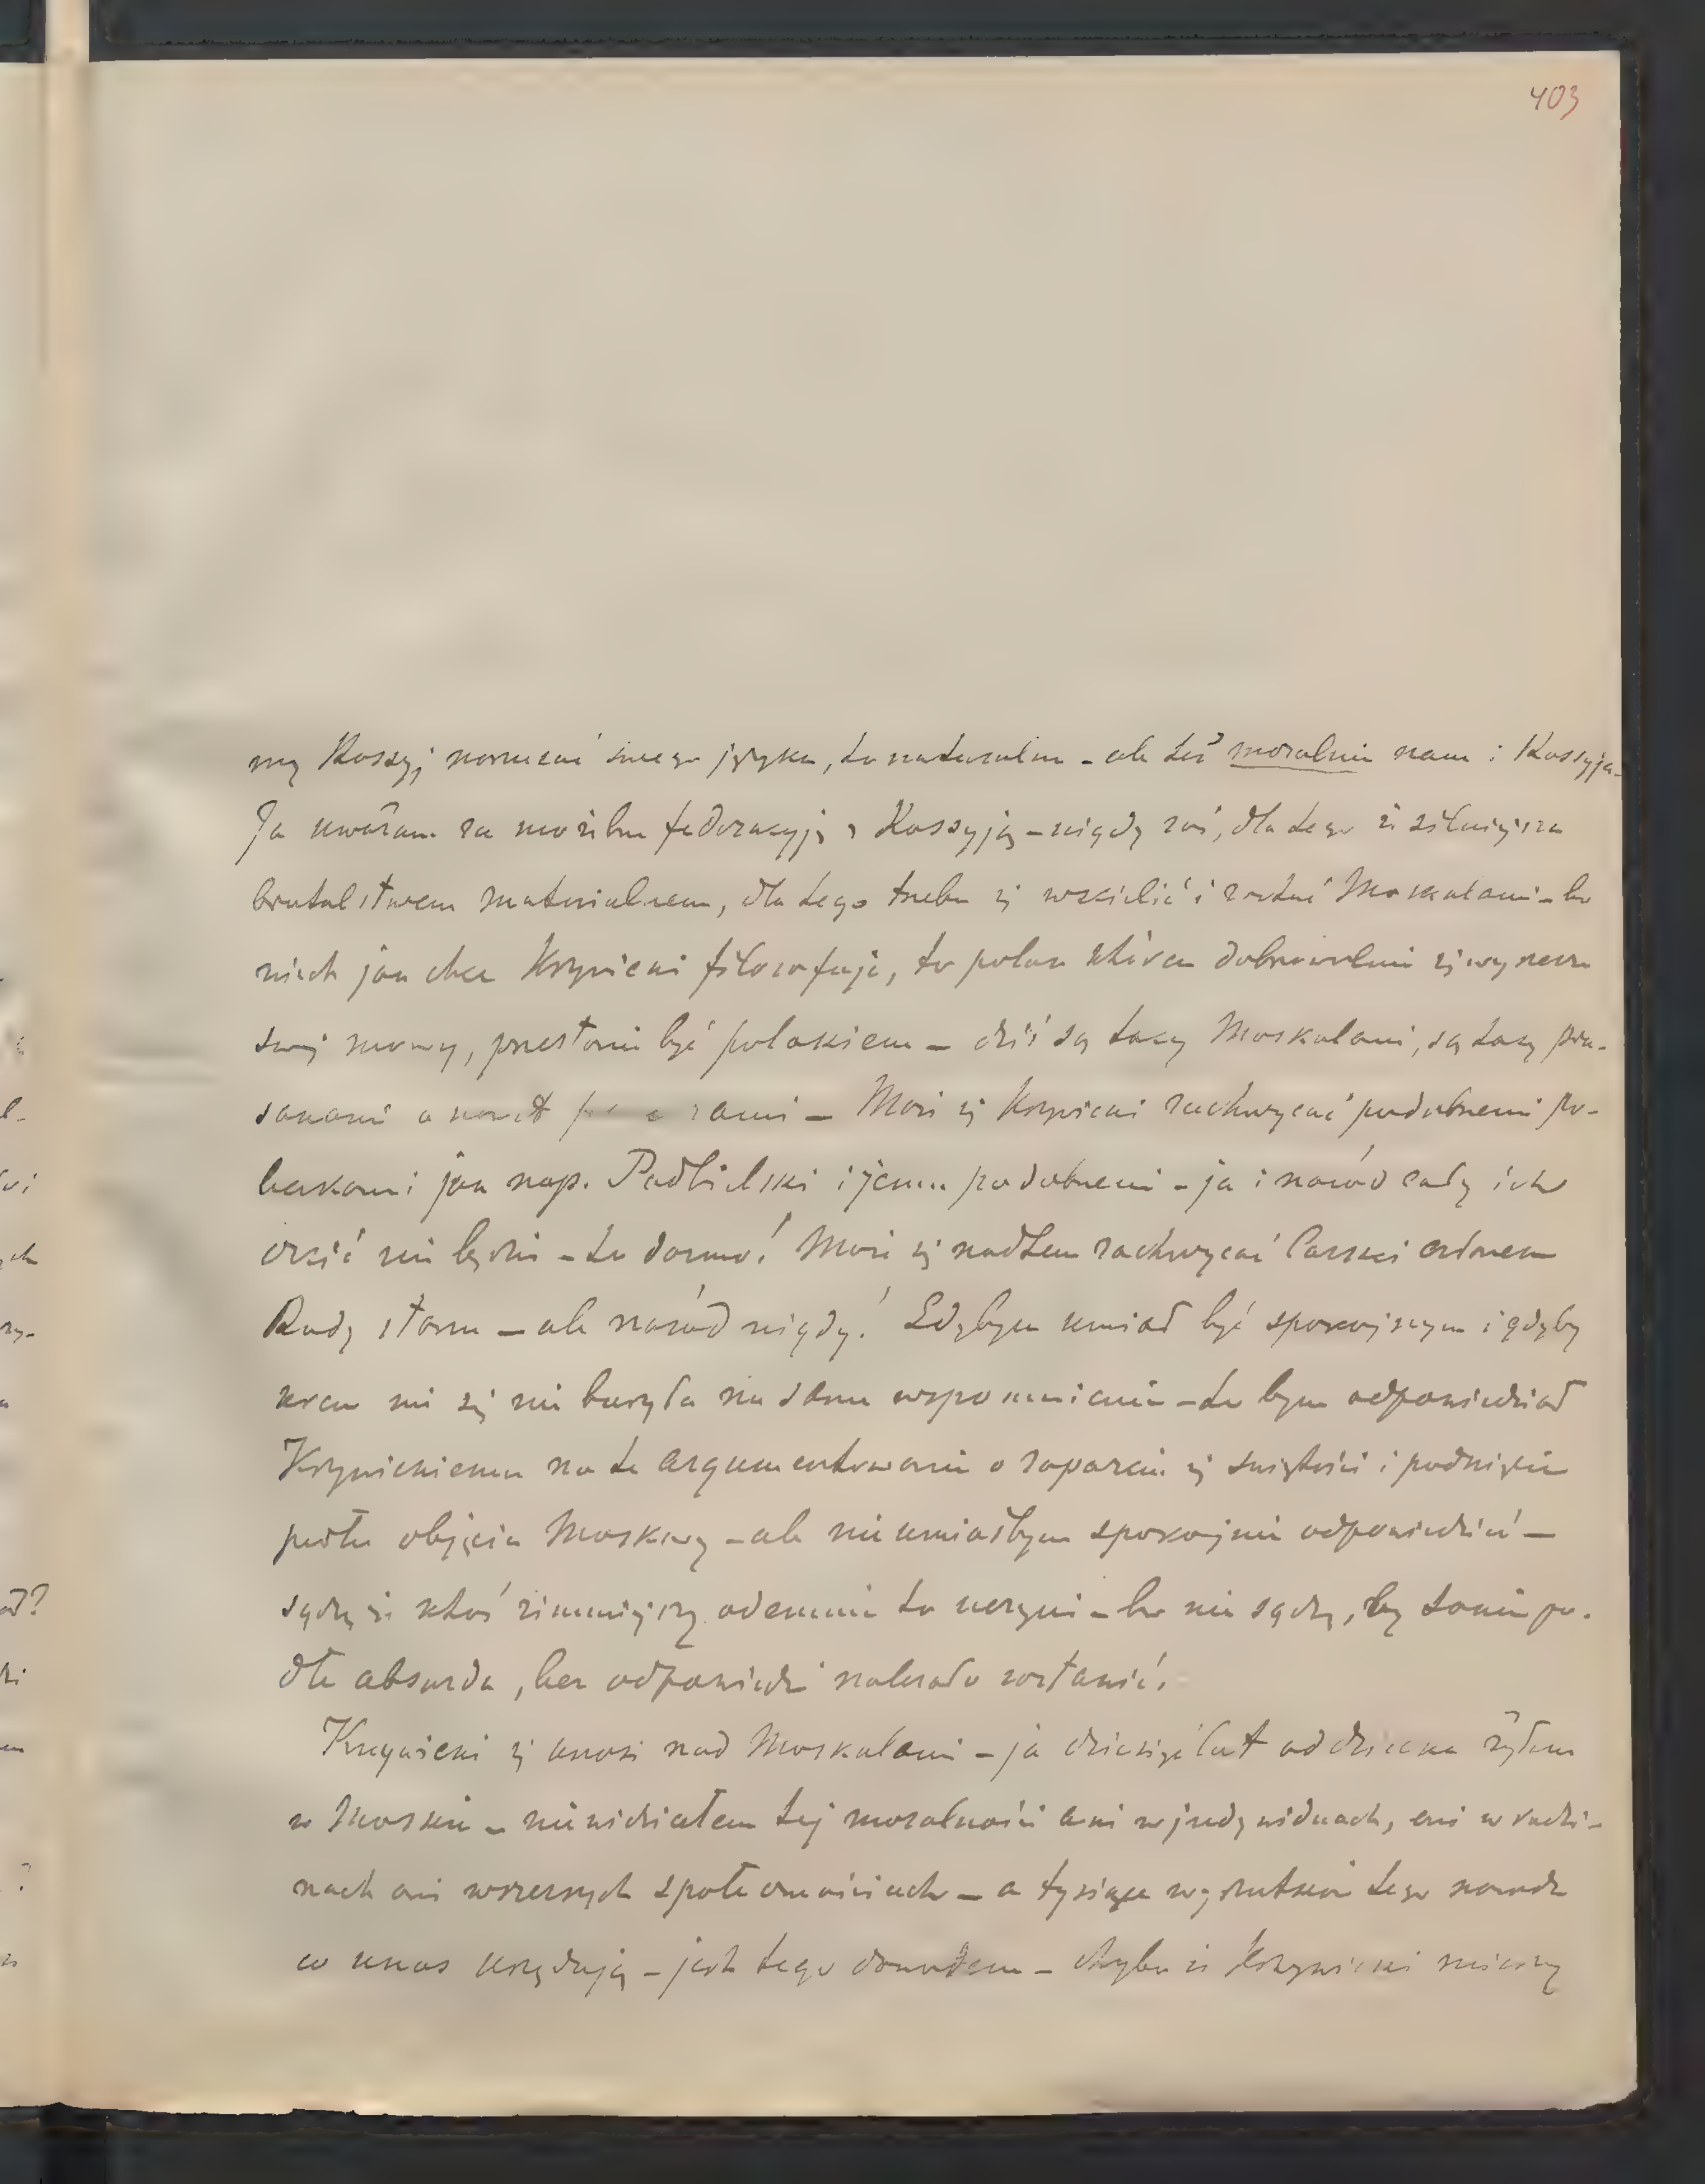 403
my Rossyj narzucać swego języka, to naturalne - ale też moralnie nam i Rossyja.
Ja uważam za możebne federacyją z Rossyją - nigdy zaś, dla tego iż silniejsza
brutalstwem materialnem, dla tego trzeba się wscielić i zostać Moskalami - bo
niech jak chce Krzywicki filozofuje, to polak któren dobrowolnie się wyrzecze
swej mowy, przestanie być polakiem - dziś są tacy Moskalami, są tacy pru-
sakami a nawet - Może się Krzywicki zachwycać podobnemi po-
lakami jak nap. Podbielski i jemu podobnemi - ja i naród cały ich
czcić nie będzie - to darmo! Może się nadtem zachwycać Carski członek
Rady stanu - ale naród nigdy! Gdybym umiał być spokojnym i gdyby
krew mi się nie burzyła na samo wspomnienie - to bym odpowiedział
Krzywickiemu na te argumentowanie o zaparciu się świętości i podnięcie
podłe objęcia Moskwy - ale nie umiałbym spokojnie odpowiedzieć -
sądzę że ktoś zimniejszy odemnie to uczyni - bo nie sądzę, by takie po-
dłe absurda, bez odpowiedzi należało zostawić.
Krzywicki się unosi nad Moskalami - ja dziesięć lat od dziecka żyłem
w Moskwie - nie widziałem tej moralności ani w jndywiduach, ani w rodzi-
nach ani w szerszych społecznościach - a tysiące wyrzutków tego narodu
co unas urzędują - jest tego dowodem - chyba iż Krzywicki mierzy